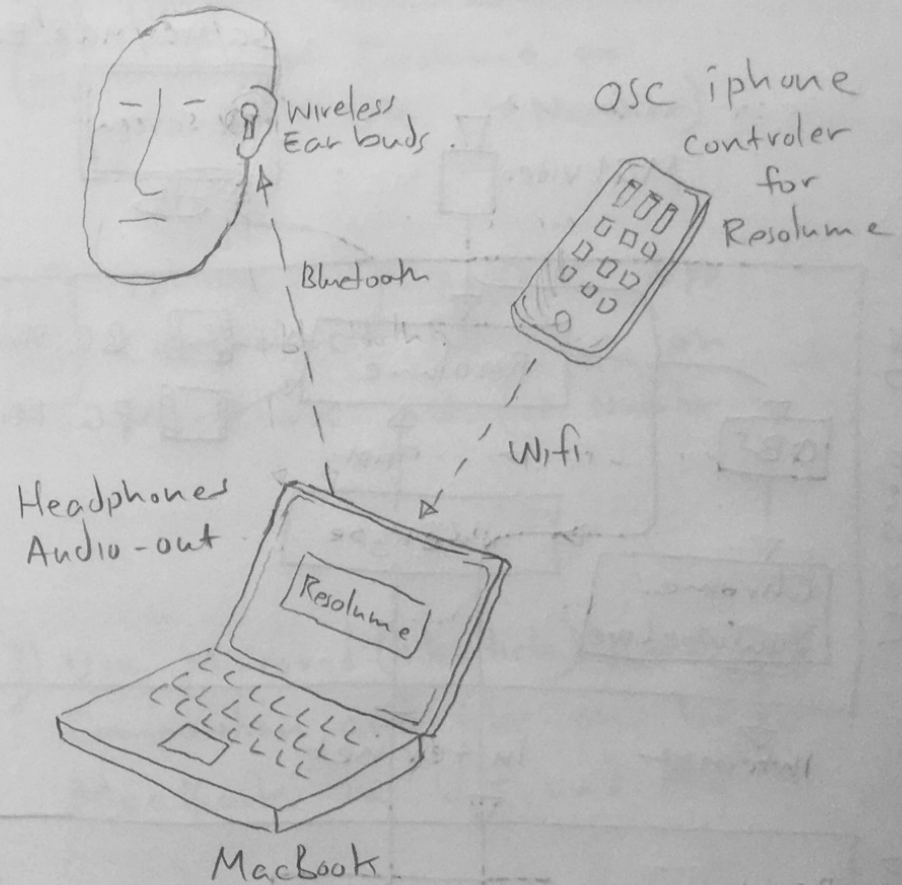 Wireless
Ear buds.
OSC iphone
Controler
for
Resolume
Bluetooth
Wifi
Headphones
Audio-out
Resolume
MacBook.